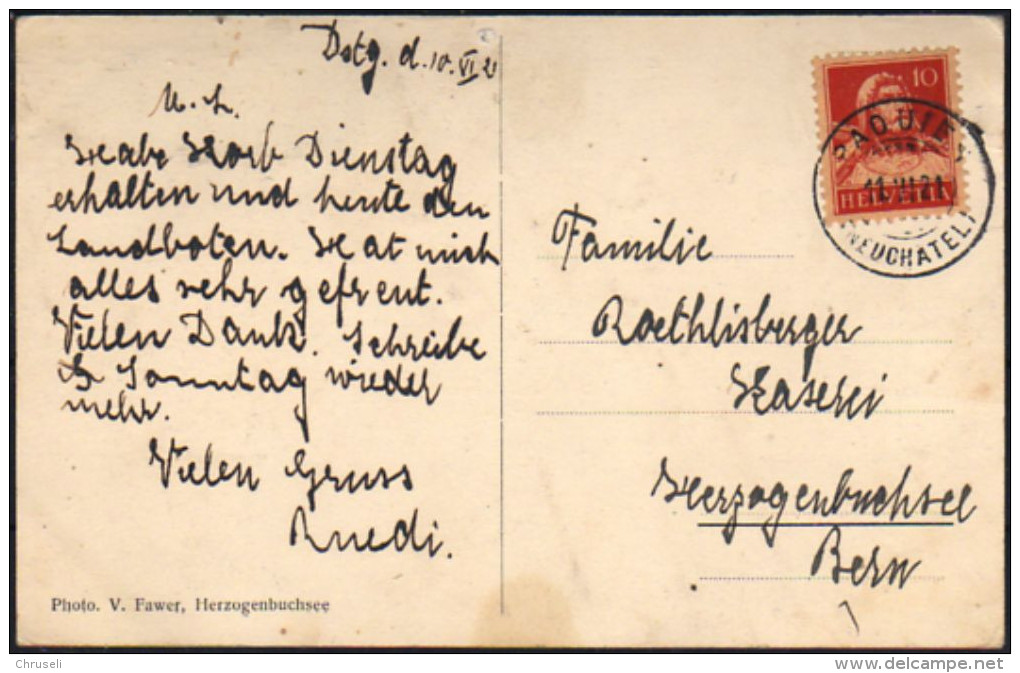 Dstg. d. 10. VI 21
M. L.
Habe Korb Dienstag
erhalten und heute den
Landboten. Hat mich
alles sehr gefreut.
Vielen Dank. Schreibe
Sonntag wieder
mehr.
Vielen Gruss
Ruedi.
Photo. V. Fawer, Herzogenbuchsee
10
HELVETIA
PAQUIER
11. VI 21
(NEUCHATEL)
Familie
Roethlisberger
Käserei
Herzogenbuchsee
Bern
Chruseli
www.delcampe.net